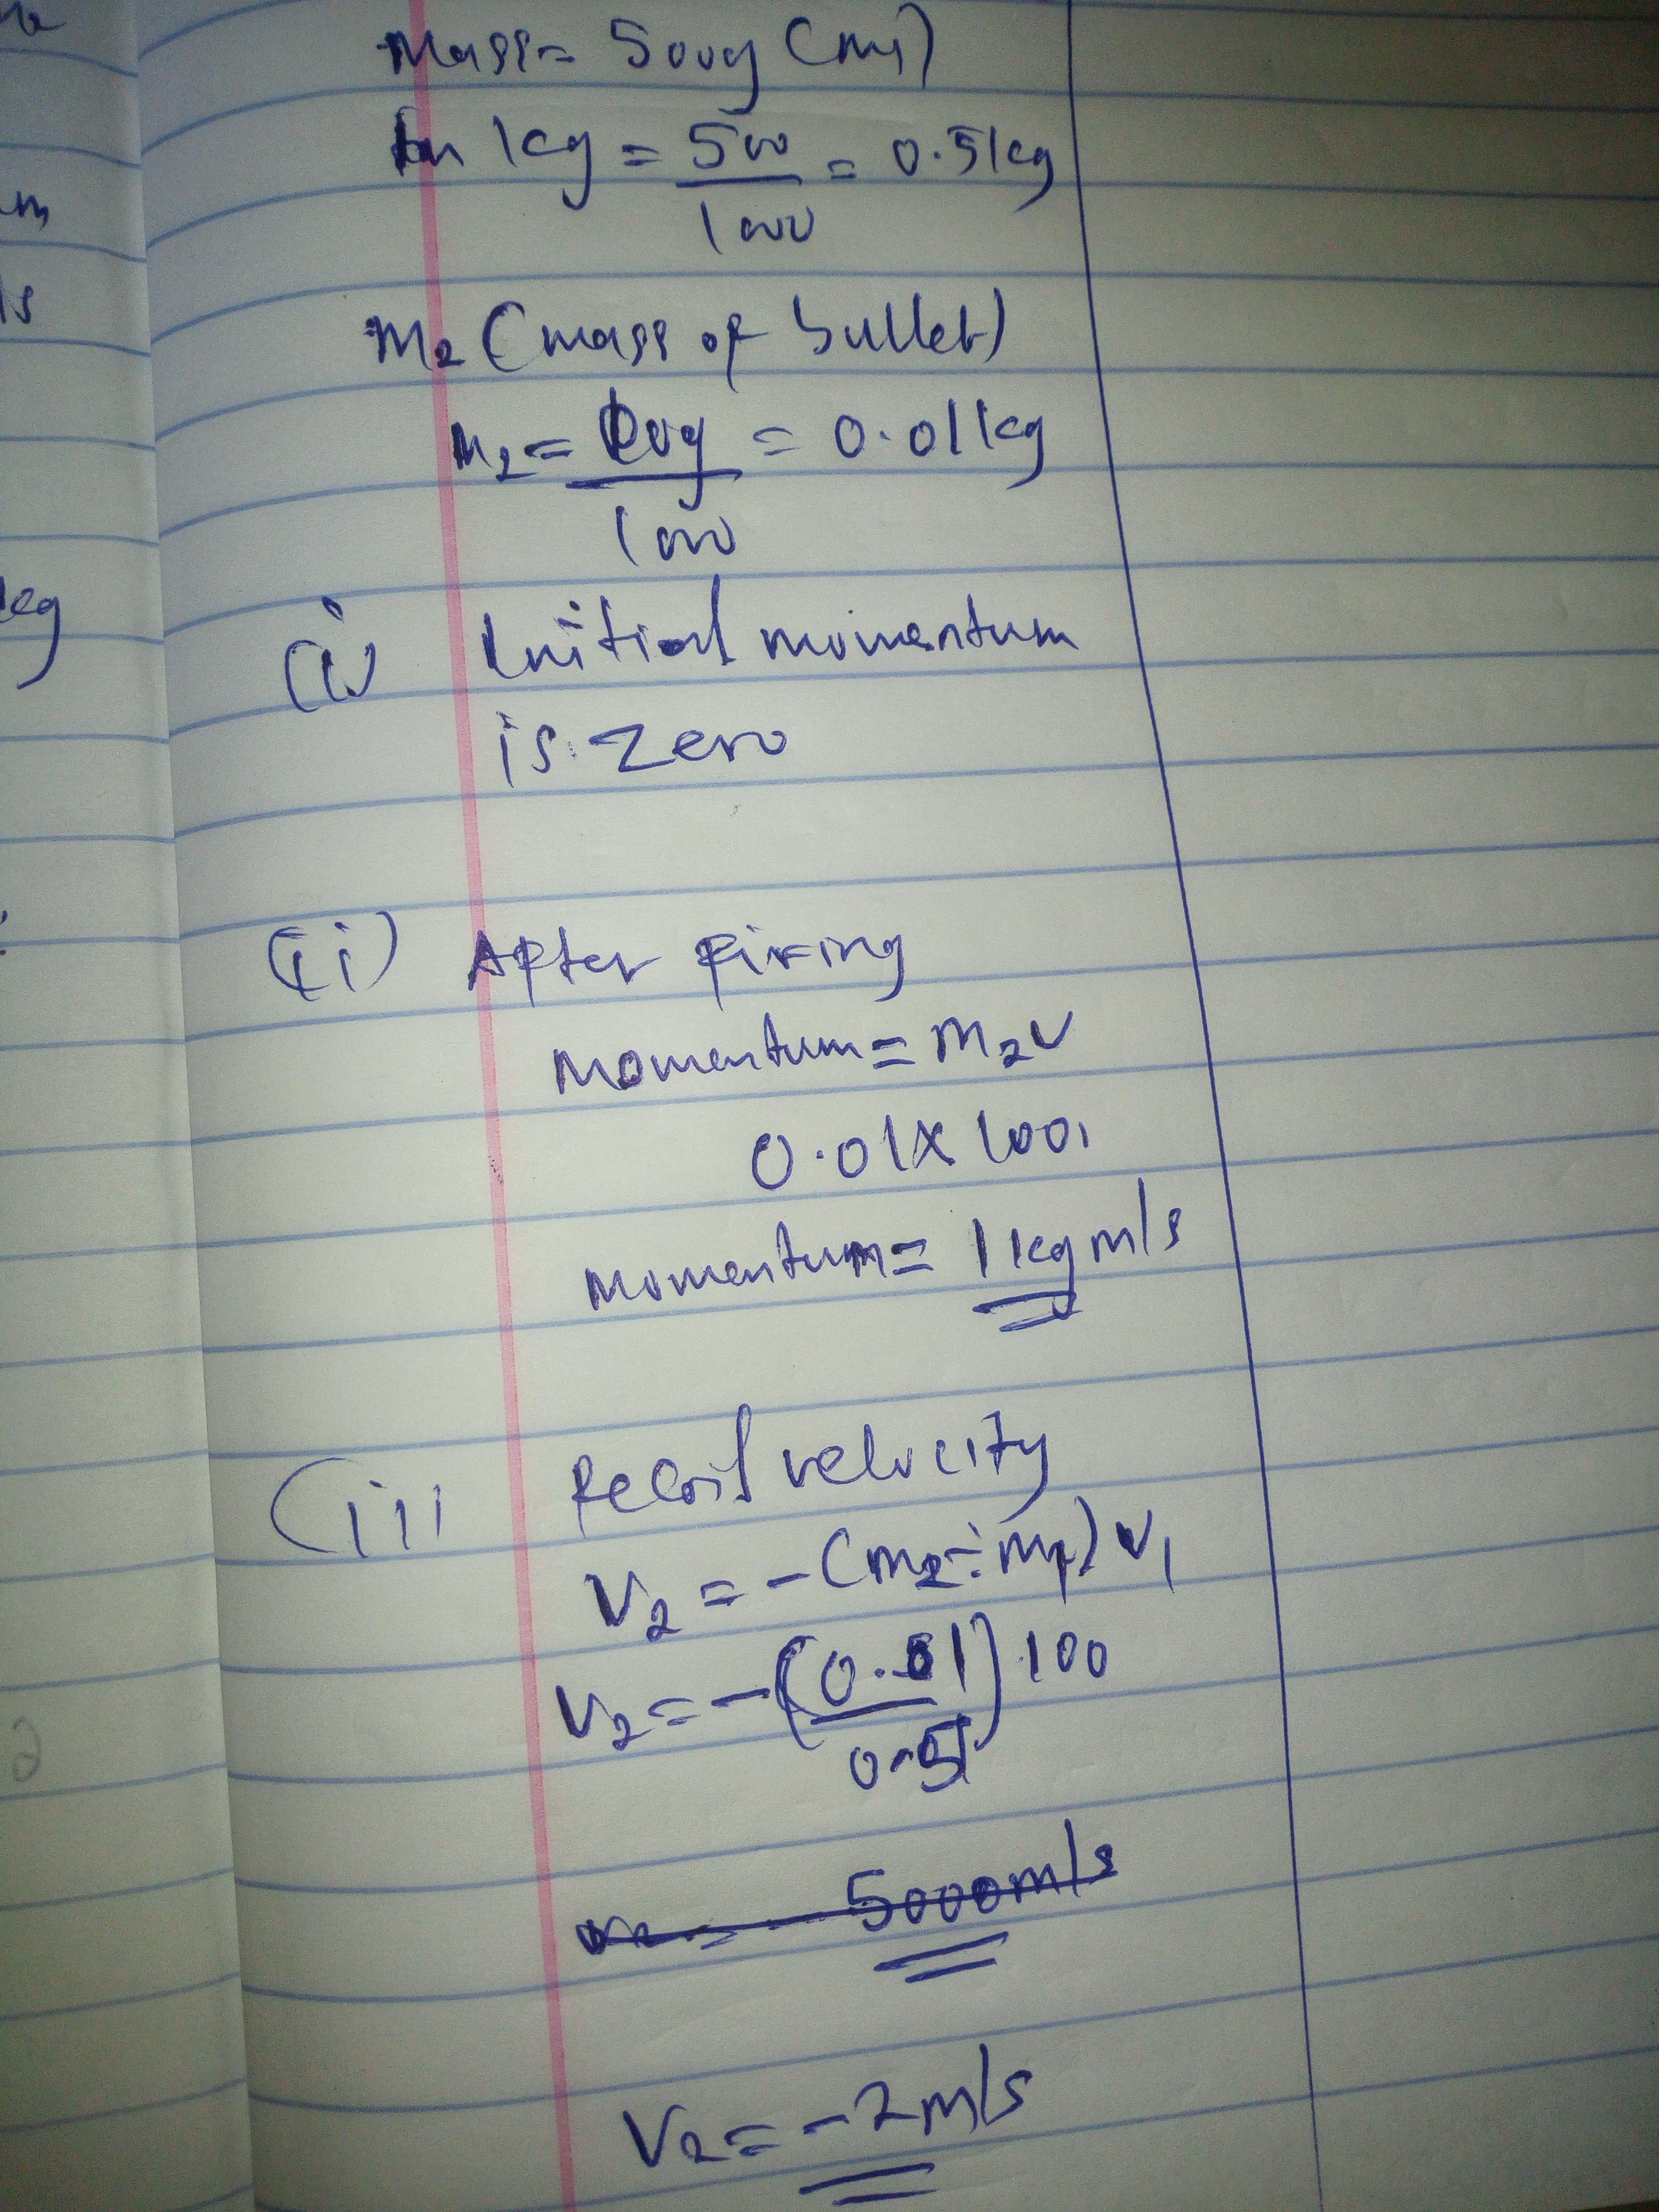 m
ls
kg
Mass = 500g (m1)
In kg = 500/1000 = 0.5kg
M2 (mass of bullet)
M2 = 10g/1000 = 0.01kg
(i) Initial momentum
is zero
(ii) After firing
Momentum = M2V
0.01 x 100
Momentum = 1kgm/s
(iii Recoil velocity
V2 = -(m2 ÷ m1) V1
V2 = -(0.01/0.5) 100
5000m/s
V2 = -2m/s